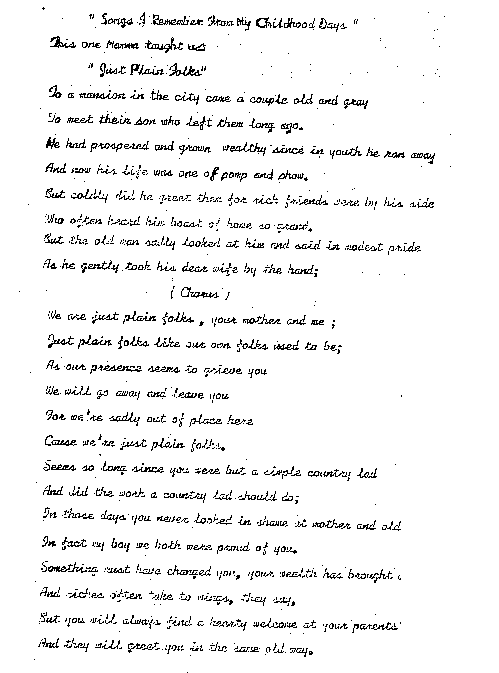 " Songs I Remember From My Childhood Days "
This one Mamma taught us
" Just Plain Folks"
To a mansion in the city came a couple old and gray
To meet their son who left them long ago.
He had prospered and grown wealthy since in youth he ran away
And now his life was one of pomp and show.
But coldly did he greet them for rich friends were by his side
Who often heard him boast of home so grand.
But the old man sadly looked at him and said in modest pride
As he gently took his dear wife by the hand;
( Chorus )
We are just plain folks, your mother and me ;
Just plain folks like our own folks used to be;
As our presence seems to grieve you
We will go away and leave you
For we're sadly out of place here
Cause we're just plain folks.
Seems so long since you were but a simple country lad
And did the work a country lad should do;
In those days you never looked in shame at mother and old
In fact my boy we both were proud of you.
Something must have changed you, your wealth has brought
And riches often take to wings, they say.
But you will always find a hearty welcome at your parents'
And they will greet you in the same old way.